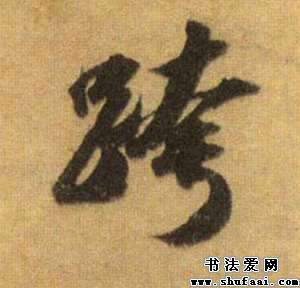 跨
书法爱网
www.shufaai.com